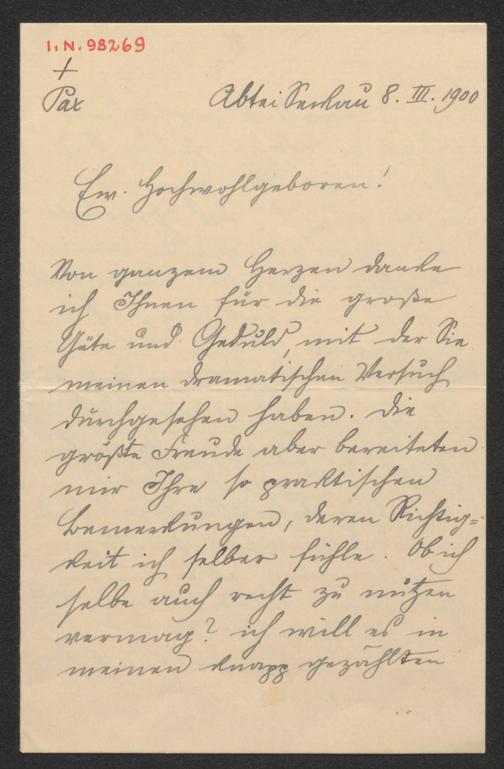 I.N. 98269
+
Pax
Abtei Seckau 8. III. 1900
Ew. Hochwohlgeboren!
Von ganzem Herzen danke
ich Ihnen für die große
Güte und Geduld, mit der Sie
meinen dramatischen Versuch
durchgesehen haben. Die
größte Freude aber bereiteten
mir Ihre so praktischen
Bemerkungen, deren Richtig=
keit ich selber fühle. Ob ich
selbe auch recht zu nützen
vermag? ich will es in
meinen knapp gezählten